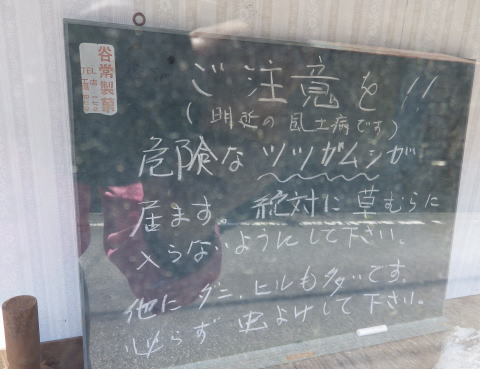 谷常製菓
ご注意を!!
(明延の風土病です)
危険なツツガムシが
居ます。絶対に草むらに
入らないようにして下さい。
他にダニ、ヒルも多いです。
必らず虫よけして下さい。